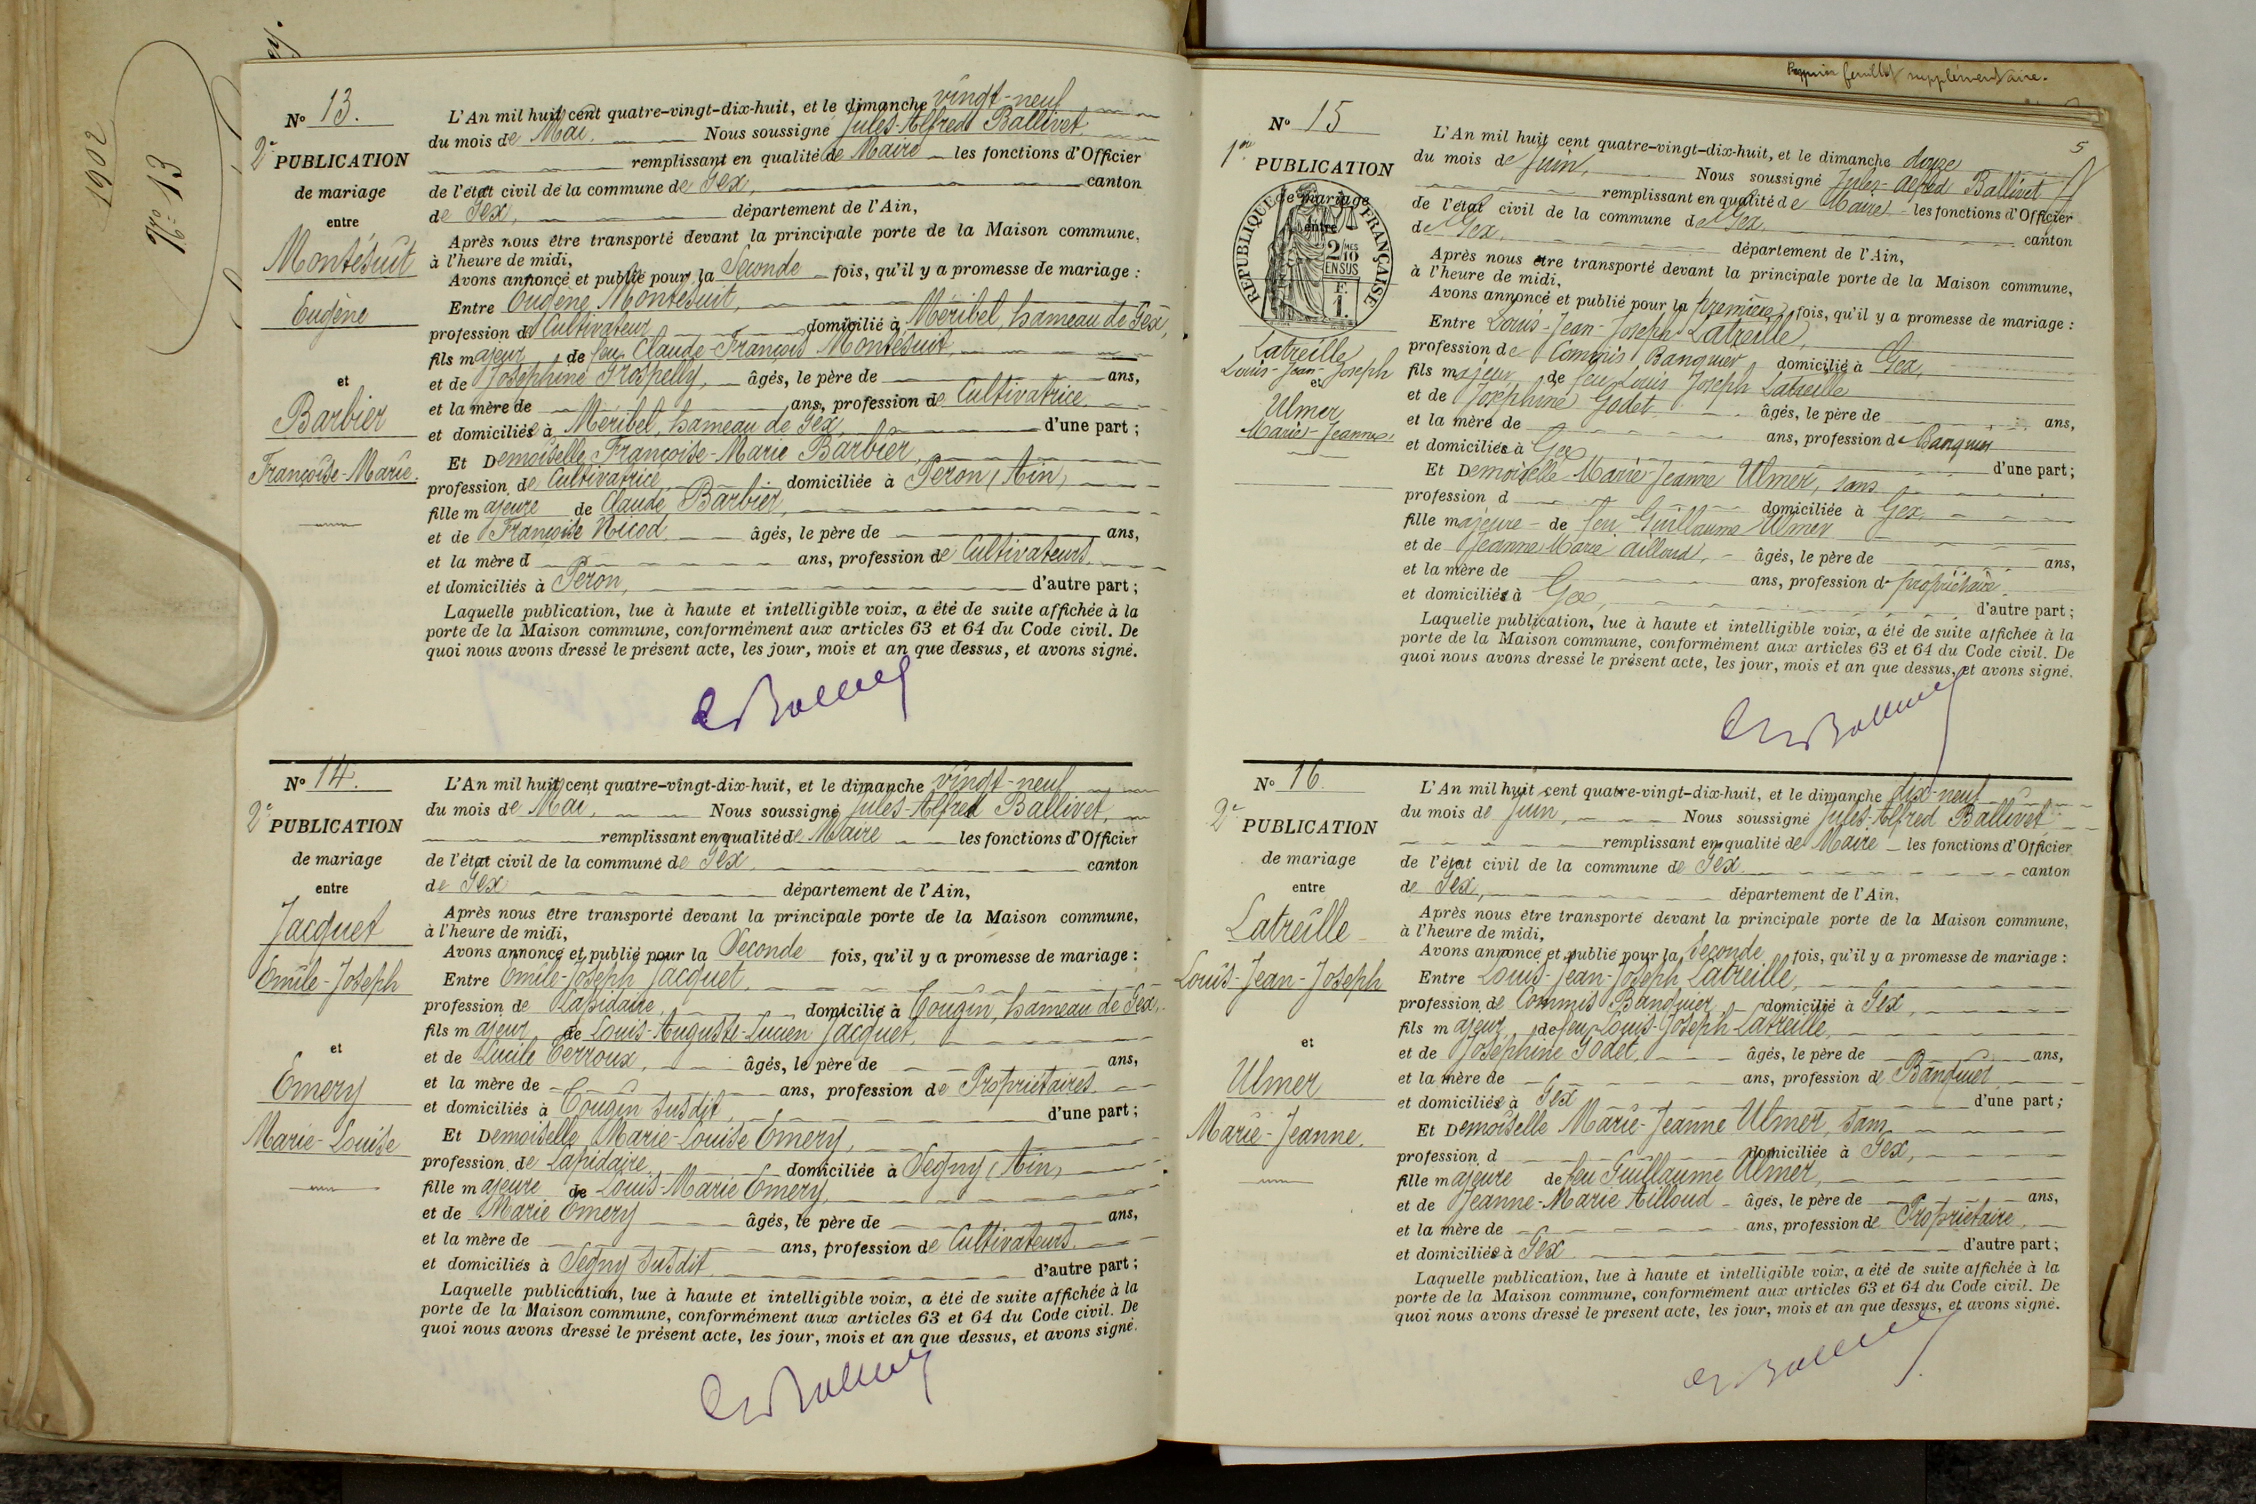 1902
N° 13
N° 13.
2e PUBLICATION
de mariage
entre
Montésuit
Eugène
et
Barbier
Françoise-Marie.
L'An mil huit cent quatre-vingt-dix-huit, et le dimanche vingt-neuf
du mois de Mai, Nous soussigné Jules-Alfred Ballivet
remplissant en qualité de Maire les fonctions d'Officier
de l'état civil de la commune de Gex, canton
de Gex, département de l'Ain,
Après nous être transporté devant la principale porte de la Maison commune,
à l'heure de midi,
Avons annoncé et publié pour la Seconde fois, qu'il y a promesse de mariage :
Entre Eugène Montésuit,
profession de Cultivateur domicilié à Méribel, hameau de Gex,
fils majeur de feu Claude-François Montésuit,
et de Joséphine Grospelly, âgés, le père de ans,
et la mère de ans, profession de Cultivatrice
et domiciliée à Méribel, hameau de Gex, d'une part ;
Et Demoiselle Françoise-Marie Barbier,
profession de Cultivatrice, domiciliée à Péron (Ain),
fille majeure de Claude Barbier,
et de Françoise Nicod, âgés, le père de ans,
et la mère d ans, profession de Cultivateurs,
et domiciliés à Péron, d'autre part ;
Laquelle publication, lue à haute et intelligible voix, a été de suite affichée à la
porte de la Maison commune, conformément aux articles 63 et 64 du Code civil. De
quoi nous avons dressé le présent acte, les jour, mois et an que dessus, et avons signé.
N° 14.
2e PUBLICATION
de mariage
entre
Jacquet
Emile-Joseph
et
Emery
Marie-Louise
L'An mil huit cent quatre-vingt-dix-huit, et le dimanche vingt-neuf
du mois de Mai, Nous soussigné Jules-Alfred Ballivet,
remplissant en qualité de Maire les fonctions d'Officier
de l'état civil de la commune de Gex canton
de Gex département de l'Ain,
Après nous être transporté devant la principale porte de la Maison commune,
à l'heure de midi,
Avons annoncé et publié pour la Seconde fois, qu'il y a promesse de mariage :
Entre Emile-Joseph Jacquet,
profession de Lapidaire, domicilié à Tougin, hameau de Gex,
fils majeur de Louis-Auguste-Lucien Jacquet,
et de Lucile Terroux, âgés, le père de ans,
et la mère de ans, profession de Propriétaires
et domiciliés à Tougin susdit, d'une part ;
Et Demoiselle Marie-Louise Emery,
profession de Lapidaire, domiciliée à Segny (Ain),
fille majeure de Louis-Marie Emery,
et de Marie Emery âgés, le père de ans,
et la mère de ans, profession de Cultivateurs
et domiciliés à Segny susdit d'autre part ;
Laquelle publication, lue à haute et intelligible voix, a été de suite affichée à la
porte de la Maison commune, conformément aux articles 63 et 64 du Code civil. De
quoi nous avons dressé le présent acte, les jour, mois et an que dessus, et avons signé.
Premier feuillet supplémentaire.
5
N° 15
1ère PUBLICATION
de mariage
entre
RÉPUBLIQUE FRANÇAISE
2/10
EN SUS
F.
1.
Latreille
Louis-Jean-Joseph
et
Ulmer
Marie-Jeanne,
L'An mil huit cent quatre-vingt-dix-huit, et le dimanche douze
du mois de Juin, Nous soussigné Jules-Alfred Ballivet
remplissant en qualité de Maire les fonctions d'Officier
de l'état civil de la commune de Gex, canton
de Gex, département de l'Ain,
Après nous être transporté devant la principale porte de la Maison commune,
à l'heure de midi,
Avons annoncé et publié pour la première fois, qu'il y a promesse de mariage :
Entre Louis-Jean-Joseph Latreille,
profession de Commis Banquier domicilié à Gex,
fils majeur de feu Louis Joseph Latreille
et de Joséphine Godet âgés, le père de ans,
et la mère de ans, profession de Banquier
et domiciliée à Gex d'une part ;
Et Demoiselle Marie Jeanne Ulmer, sans
profession d domiciliée à Gex,
fille majeure de feu Guillaume Ulmer
et de Jeanne Marie Ailloud, âgés, le père de ans,
et la mère de ans, profession de propriétaire
et domiciliée à Gex, d'autre part ;
Laquelle publication, lue à haute et intelligible voix, a été de suite affichée à la
porte de la Maison commune, conformément aux articles 63 et 64 du Code civil. De
quoi nous avons dressé le présent acte, les jour, mois et an que dessus, et avons signé.
N° 16
2e PUBLICATION
de mariage
entre
Latreille
Louis-Jean-Joseph
et
Ulmer
Marie-Jeanne.
L'An mil huit cent quatre-vingt-dix-huit, et le dimanche dix-neuf
du mois de Juin, Nous soussigné Jules-Alfred Ballivet
remplissant en qualité de Maire les fonctions d'Officier
de l'état civil de la commune de Gex canton
de Gex, département de l'Ain,
Après nous être transporté devant la principale porte de la Maison commune,
à l'heure de midi,
Avons annoncé et publié pour la Seconde fois, qu'il y a promesse de mariage :
Entre Louis-Jean-Joseph Latreille,
profession de Commis Banquier, domicilié à Gex,
fils majeur de feu Louis-Joseph Latreille,
et de Joséphine Godet, âgés, le père de ans,
et la mère de ans, profession de Banquier
et domiciliée à Gex d'une part ;
Et Demoiselle Marie-Jeanne Ulmer, sans
profession d domiciliée à Gex,
fille majeure de feu Guillaume Ulmer,
et de Jeanne-Marie Ailloud âgés, le père de ans,
et la mère de ans, profession de Propriétaire,
et domiciliée à Gex d'autre part ;
Laquelle publication, lue à haute et intelligible voix, a été de suite affichée à la
porte de la Maison commune, conformément aux articles 63 et 64 du Code civil. De
quoi nous avons dressé le présent acte, les jour, mois et an que dessus, et avons signé.